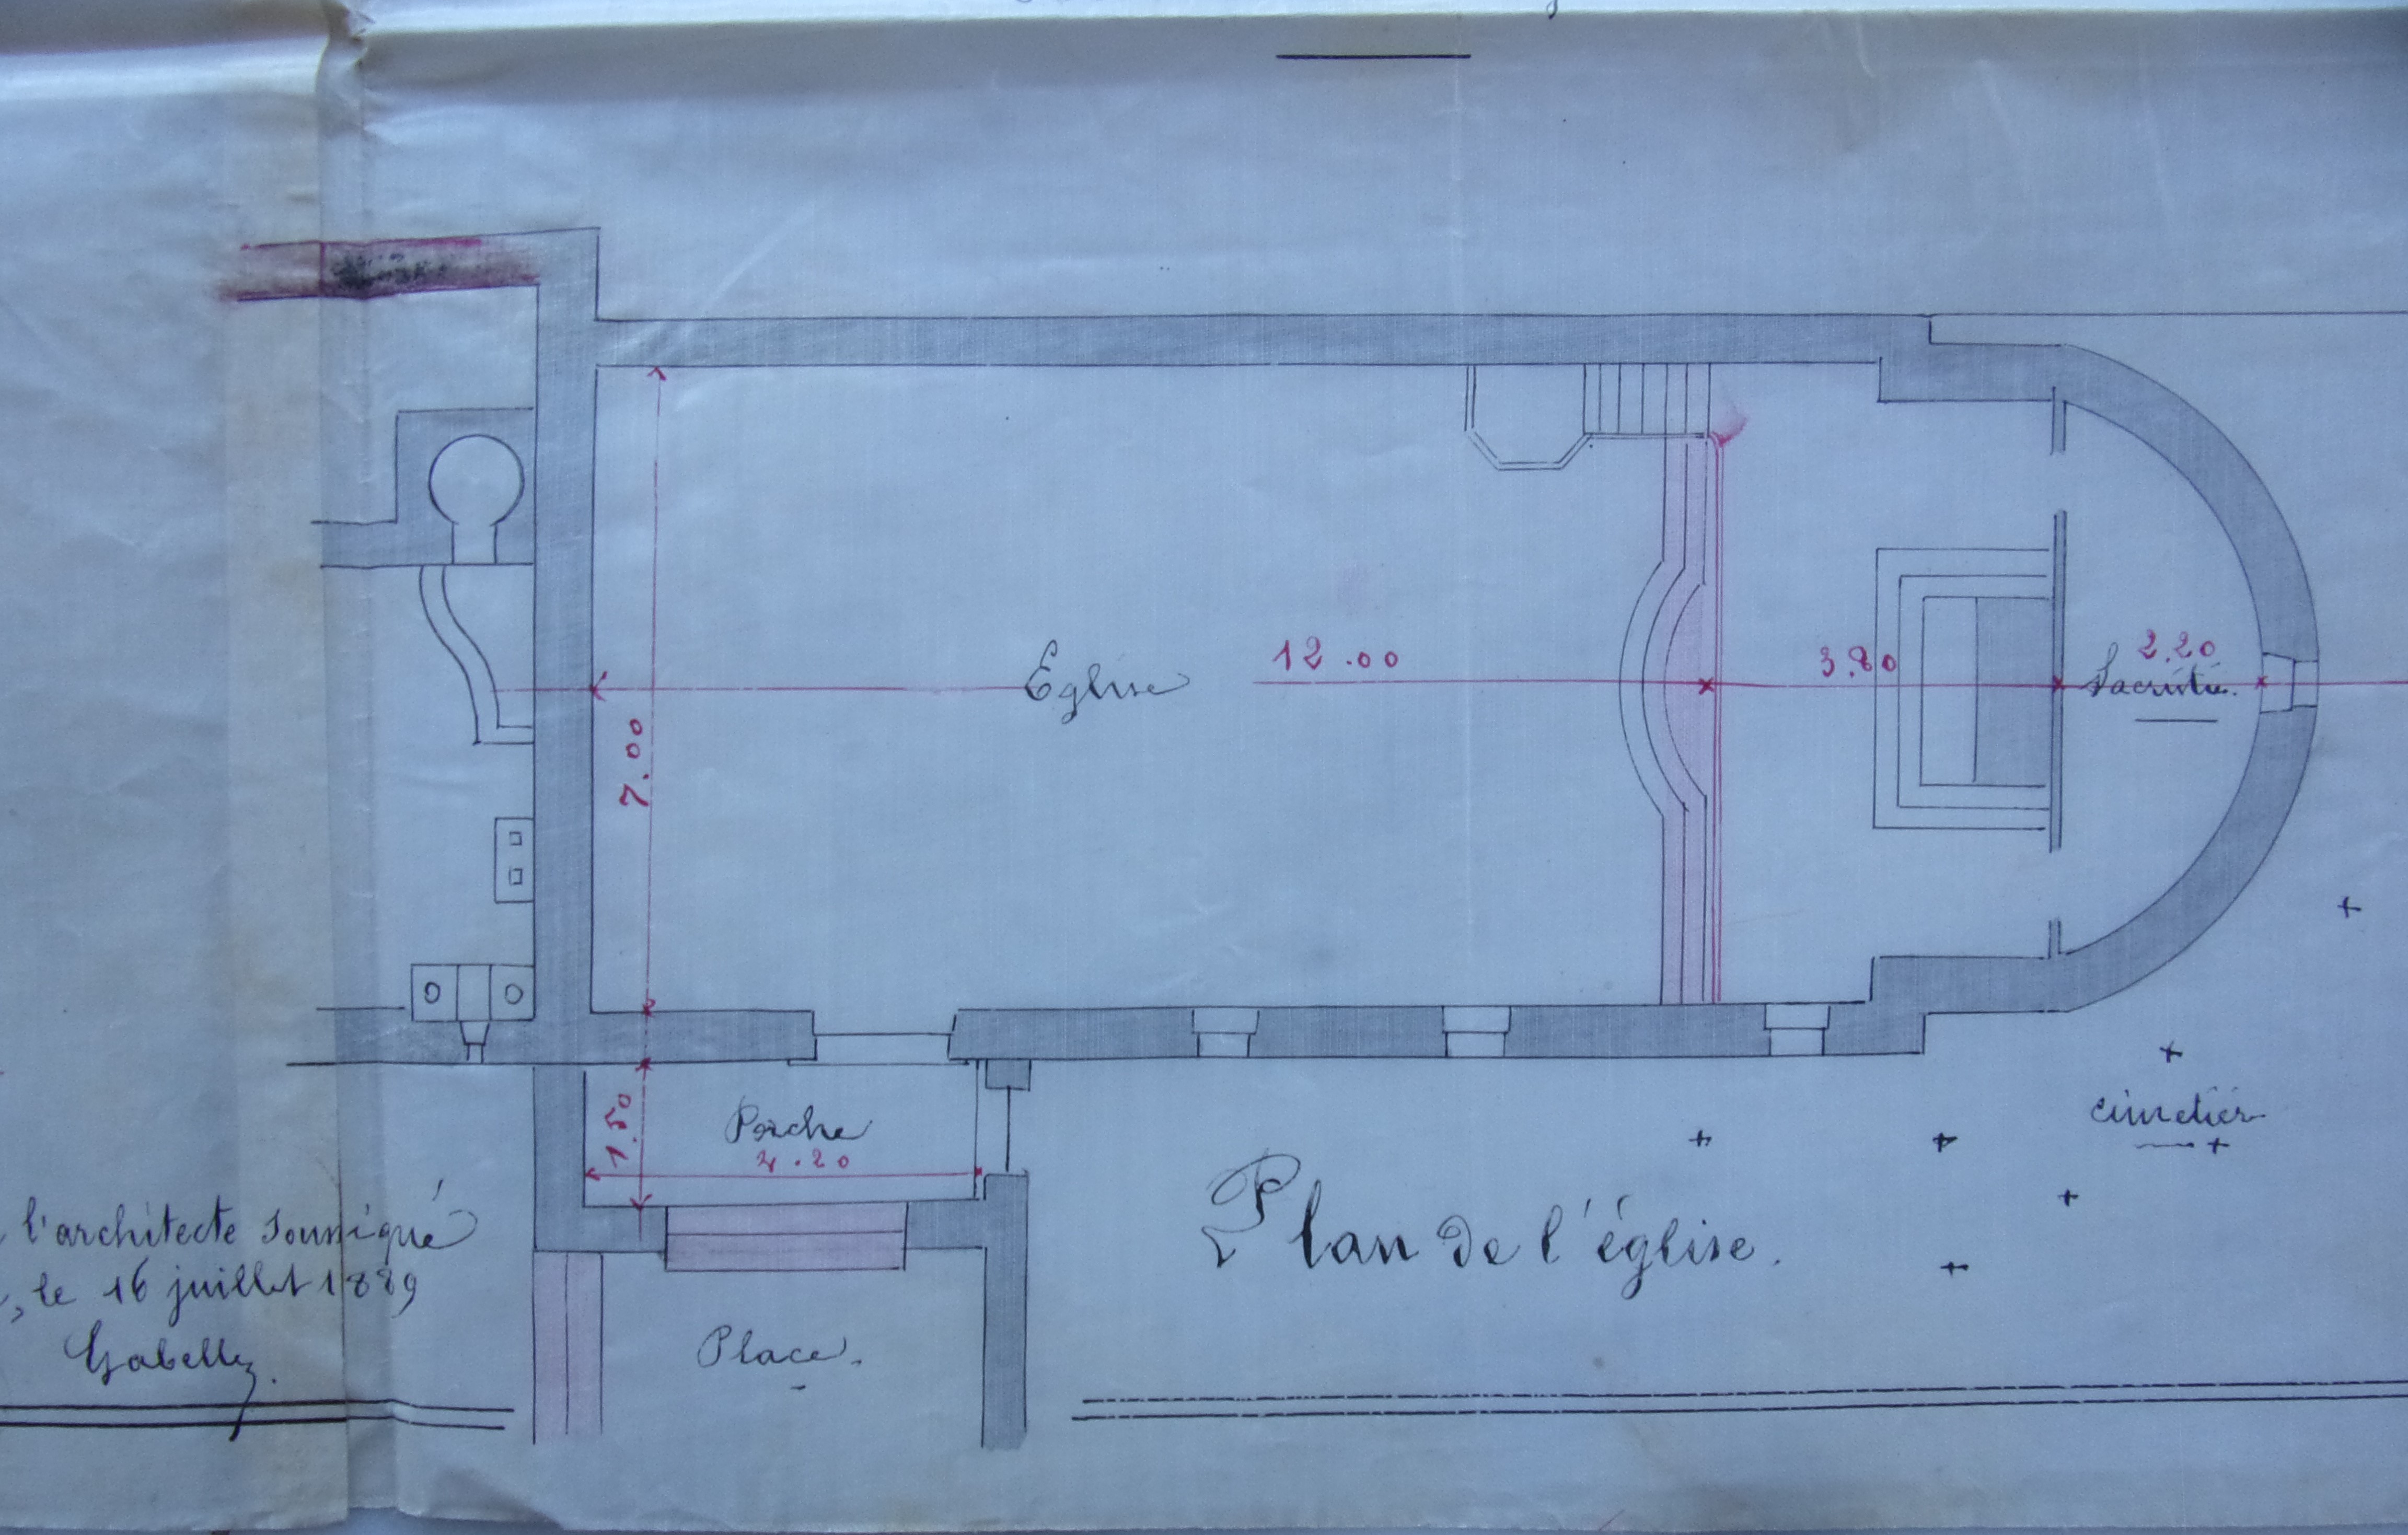 Eglise
12.00
3.80
2.20
Sacristie.
7.00
1.50
Porche
4.20
cimetièr
Plan de l'église.
Place.
l'architecte soussigné
, le 16 juillet 1889
Gabelle